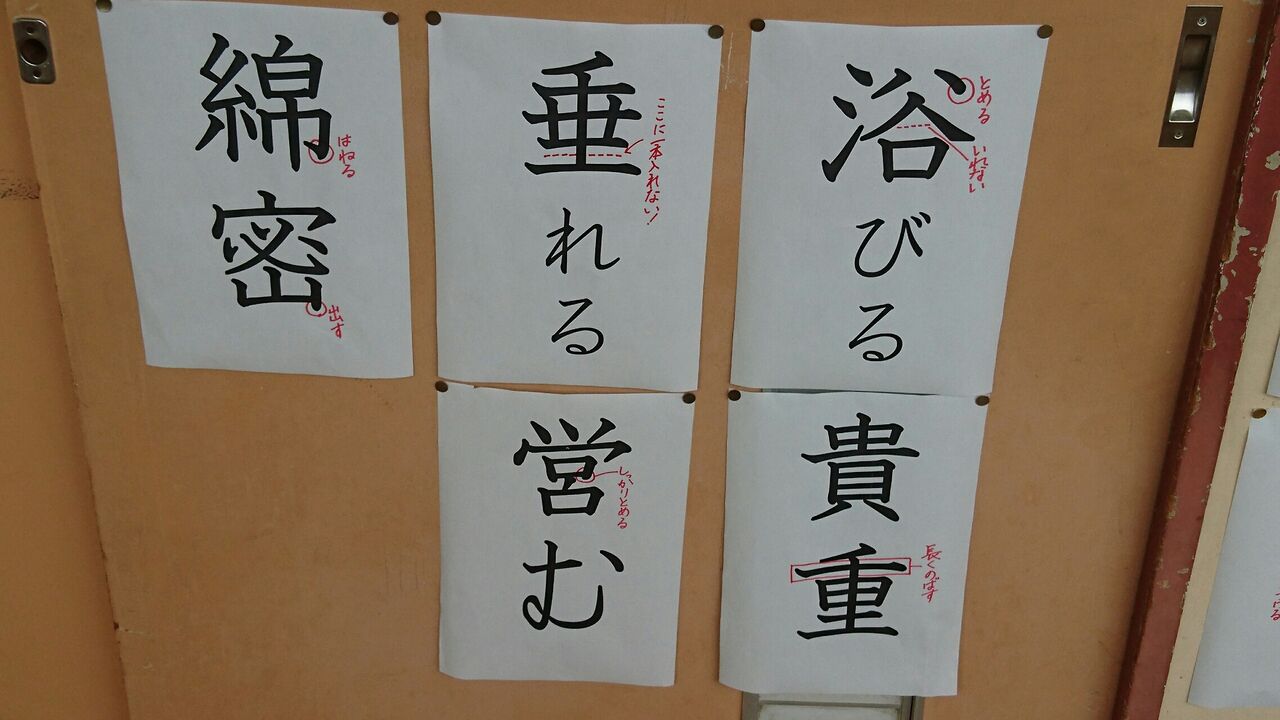 浴びる
とめる
いれない
貴重
長くのばす
垂れる
ここに一本入れない!
営む
しっかりとめる
綿密
はねる
出す